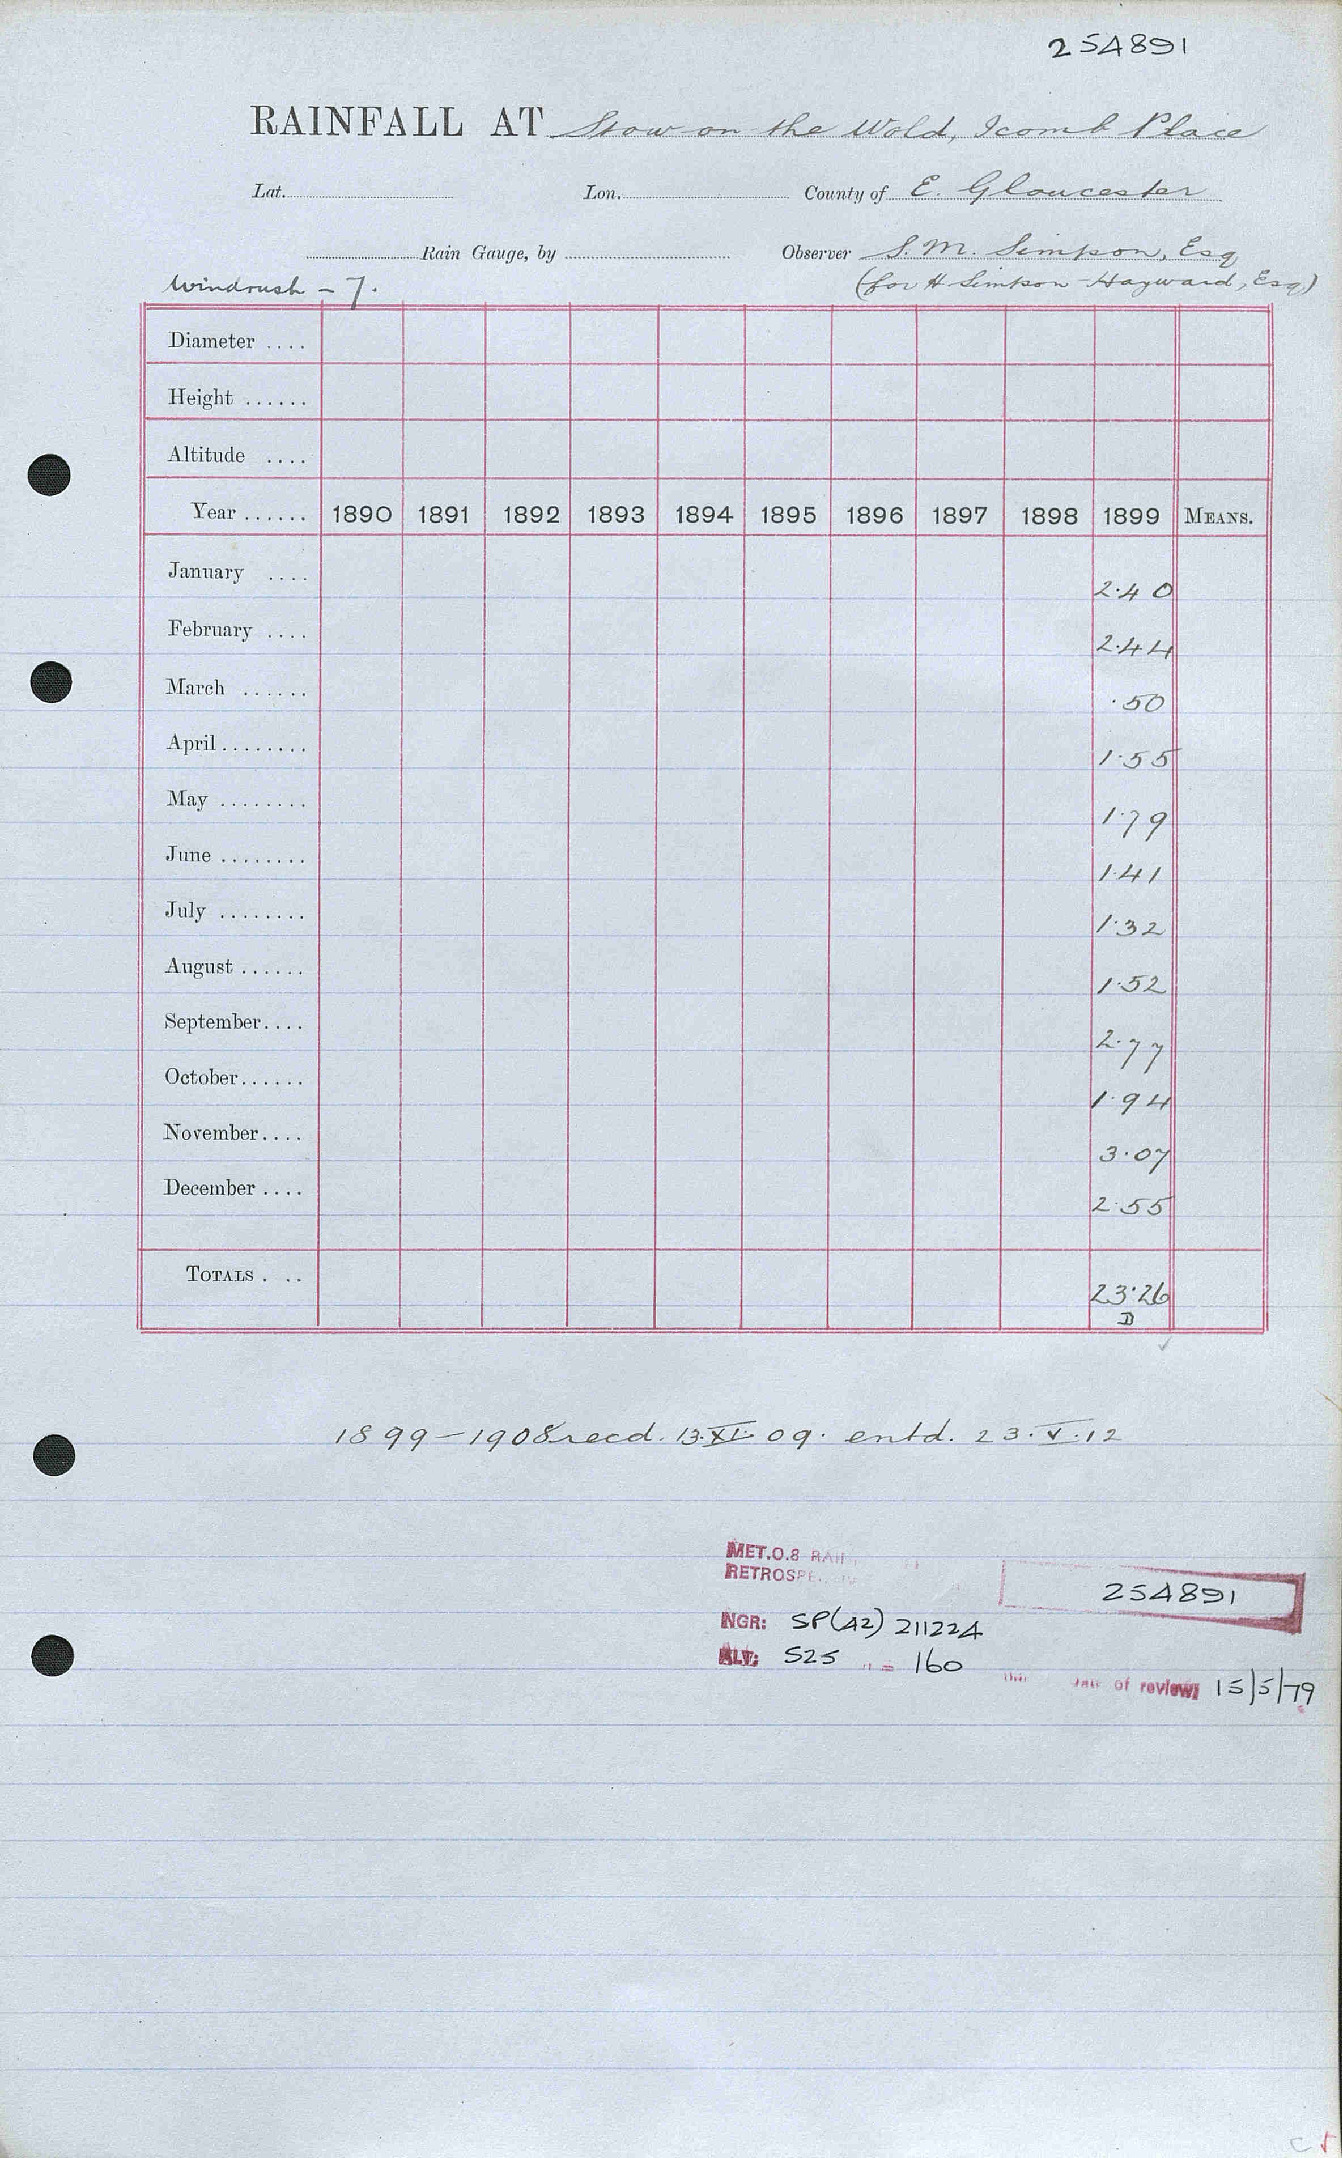 254891
RAINFALL AT Stow on the Wold, Icomb Place
Lat. Lon. County of E. Gloucester
Rain Gauge, by Observer S. M. Simpson, Esq
Windrush - 7. (for H Simpson-Hayward, Esq)
Diameter ....
Height ......
Altitude ....
Year ...... 1890 1891 1892 1893 1894 1895 1896 1897 1898 1899 MEANS.
January .... 2.40
February .... 2.44
March ...... .50
April ........ 1.55
May ........ 1.79
June ........ 1.41
July ........ 1.32
August ...... 1.52
September.... 2.77
October...... 1.94
November.... 3.07
December .... 2.55
TOTALS . .. 23.26
D
1899-1908 recd. 13.XI.09. entd. 23.V.12
MET.O.8
254891
NGR: SP(42) 211224
ALT: 525 = 160
of review: 15/5/79